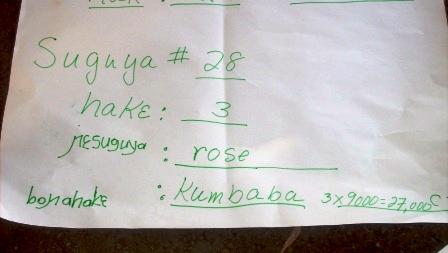 Suguya # 28
hake: 3
mesuguya : rose
bonahake : Kumbaba 3x9000=27,000